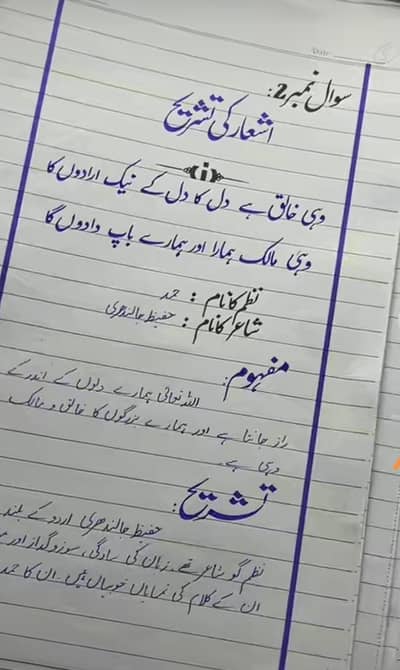 سوال نمبر 2:
اشعار کی تشریح
(i)
وہی خالق ہے دل کا دل کے نیک ارادوں کا
وہی مالک ہمارا اور ہمارے باپ دادوں کا
نظم کا نام : حمد
شاعر کا نام : حفیظ جالندھری
مفہوم:
اللہ تعالیٰ ہمارے دلوں کے اندر کے
راز جانتا ہے اور ہمارے بزرگوں کا خالق و مالک
وہی ہے۔
تشریح:
حفیظ جالندھری اردو کے بلند
نظم گو شاعر تھے۔ زبان کی سادگی، سوز و گداز اور
ان کے کلام کی نمایاں خوبیاں ہیں۔ ان کا حمد